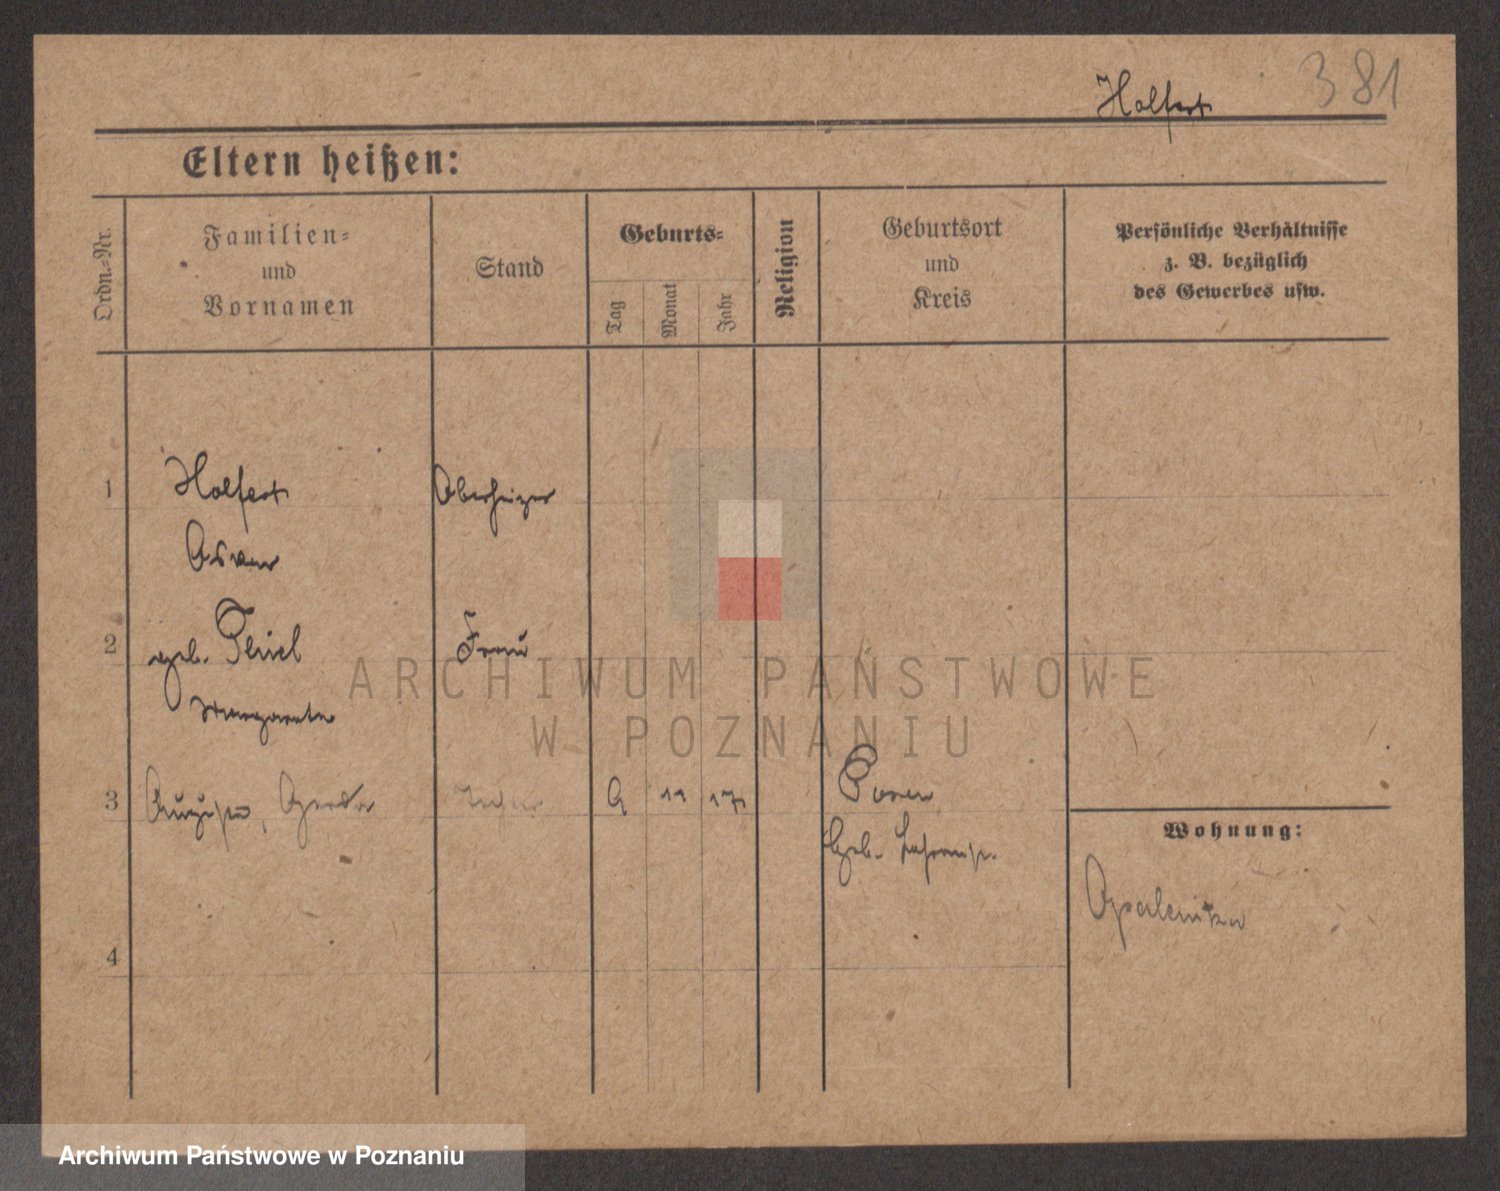 381
Holfert
Eltern heißen:
Ordn.-Nr.
Familien-
und
Vornamen
Stand
Geburts-
Tag
Monat
Jahr
Religion
Geburtsort
und
Kreis
Persönliche Verhältnisse
z. B. bezüglich
des Gewerbes usw.
1
Holfert
Oberheizer
Oskar
2
geb. Theiel
Frau
Margarete
ARCHIWUM PAŃSTWOWE
W POZNANIU
3
Gerda
11
17
Posen
Geb.
Wohnung:
Opalenitza
4
Archiwum Państwowe w Poznaniu